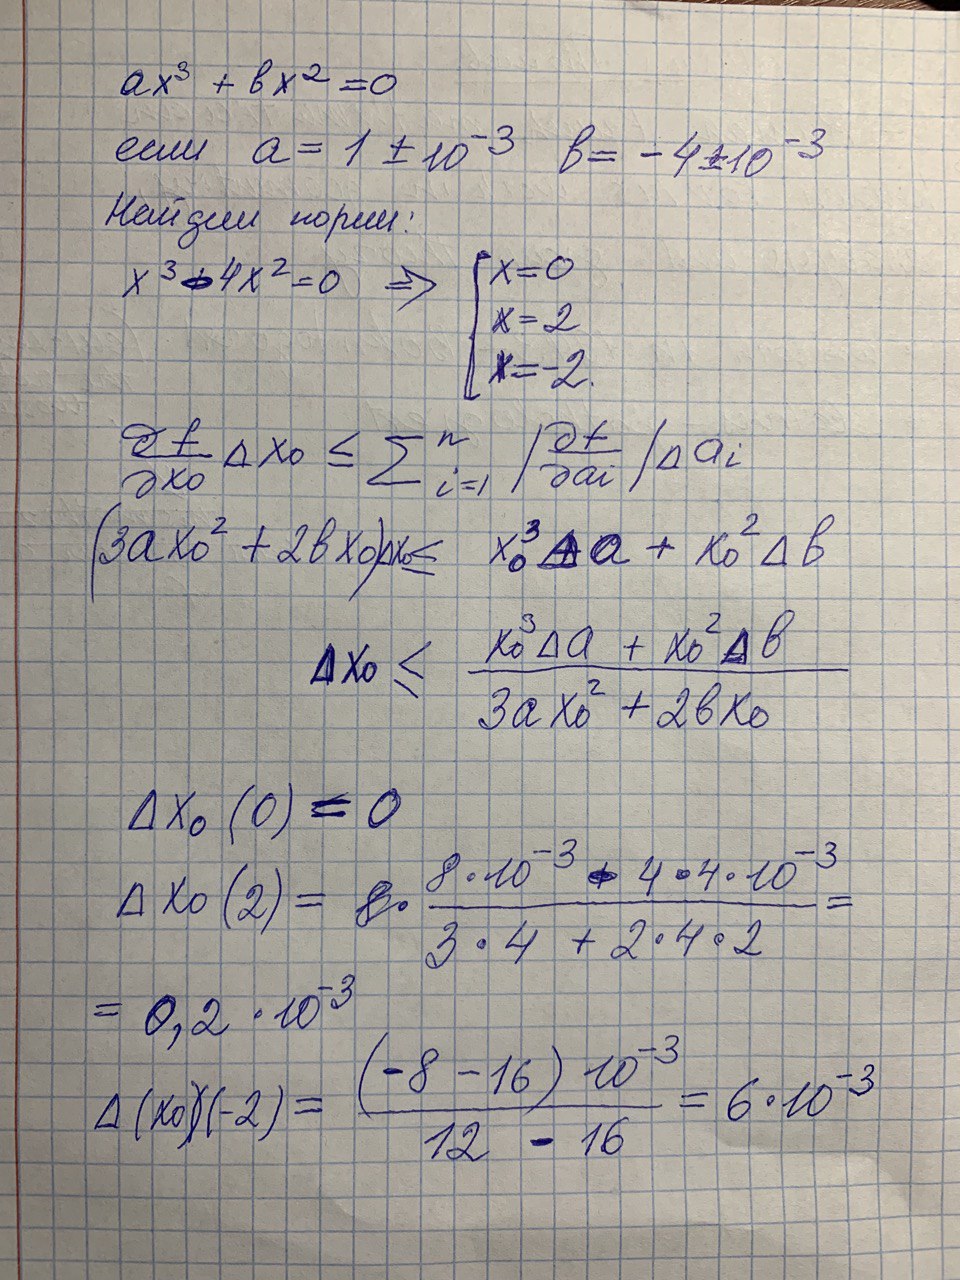 ax³ + bx² = 0
если a = 1 ± 10⁻³ b = -4 ± 10⁻³
Найдем корни:
x³ - 4x² = 0 ⇒ [ x = 0
x = 2
x = -2.
∂f/∂x₀ Δx₀ ≤ Σⁿᵢ₌₁ |∂f/∂aᵢ| Δaᵢ
(3ax₀² + 2bx₀)Δx₀ ≤ x₀³Δa + x₀²Δb
Δx₀ ≤ (x₀³Δa + x₀²Δb)/(3ax₀² + 2bx₀)
Δx₀(0) = 0
Δx₀(2) = (8·10⁻³ - 4·4·10⁻³)/(3·4 + 2·4·2) =
= 0,2·10⁻³
Δ(x₀)(-2) = (-8 - 16)10⁻³/(12 - 16) = 6·10⁻³